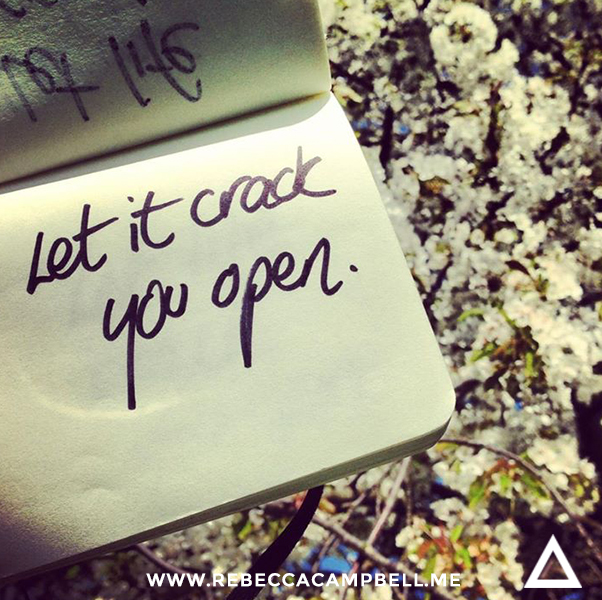 Let it crack
you open.
WWW.REBECCACAMPBELL.ME